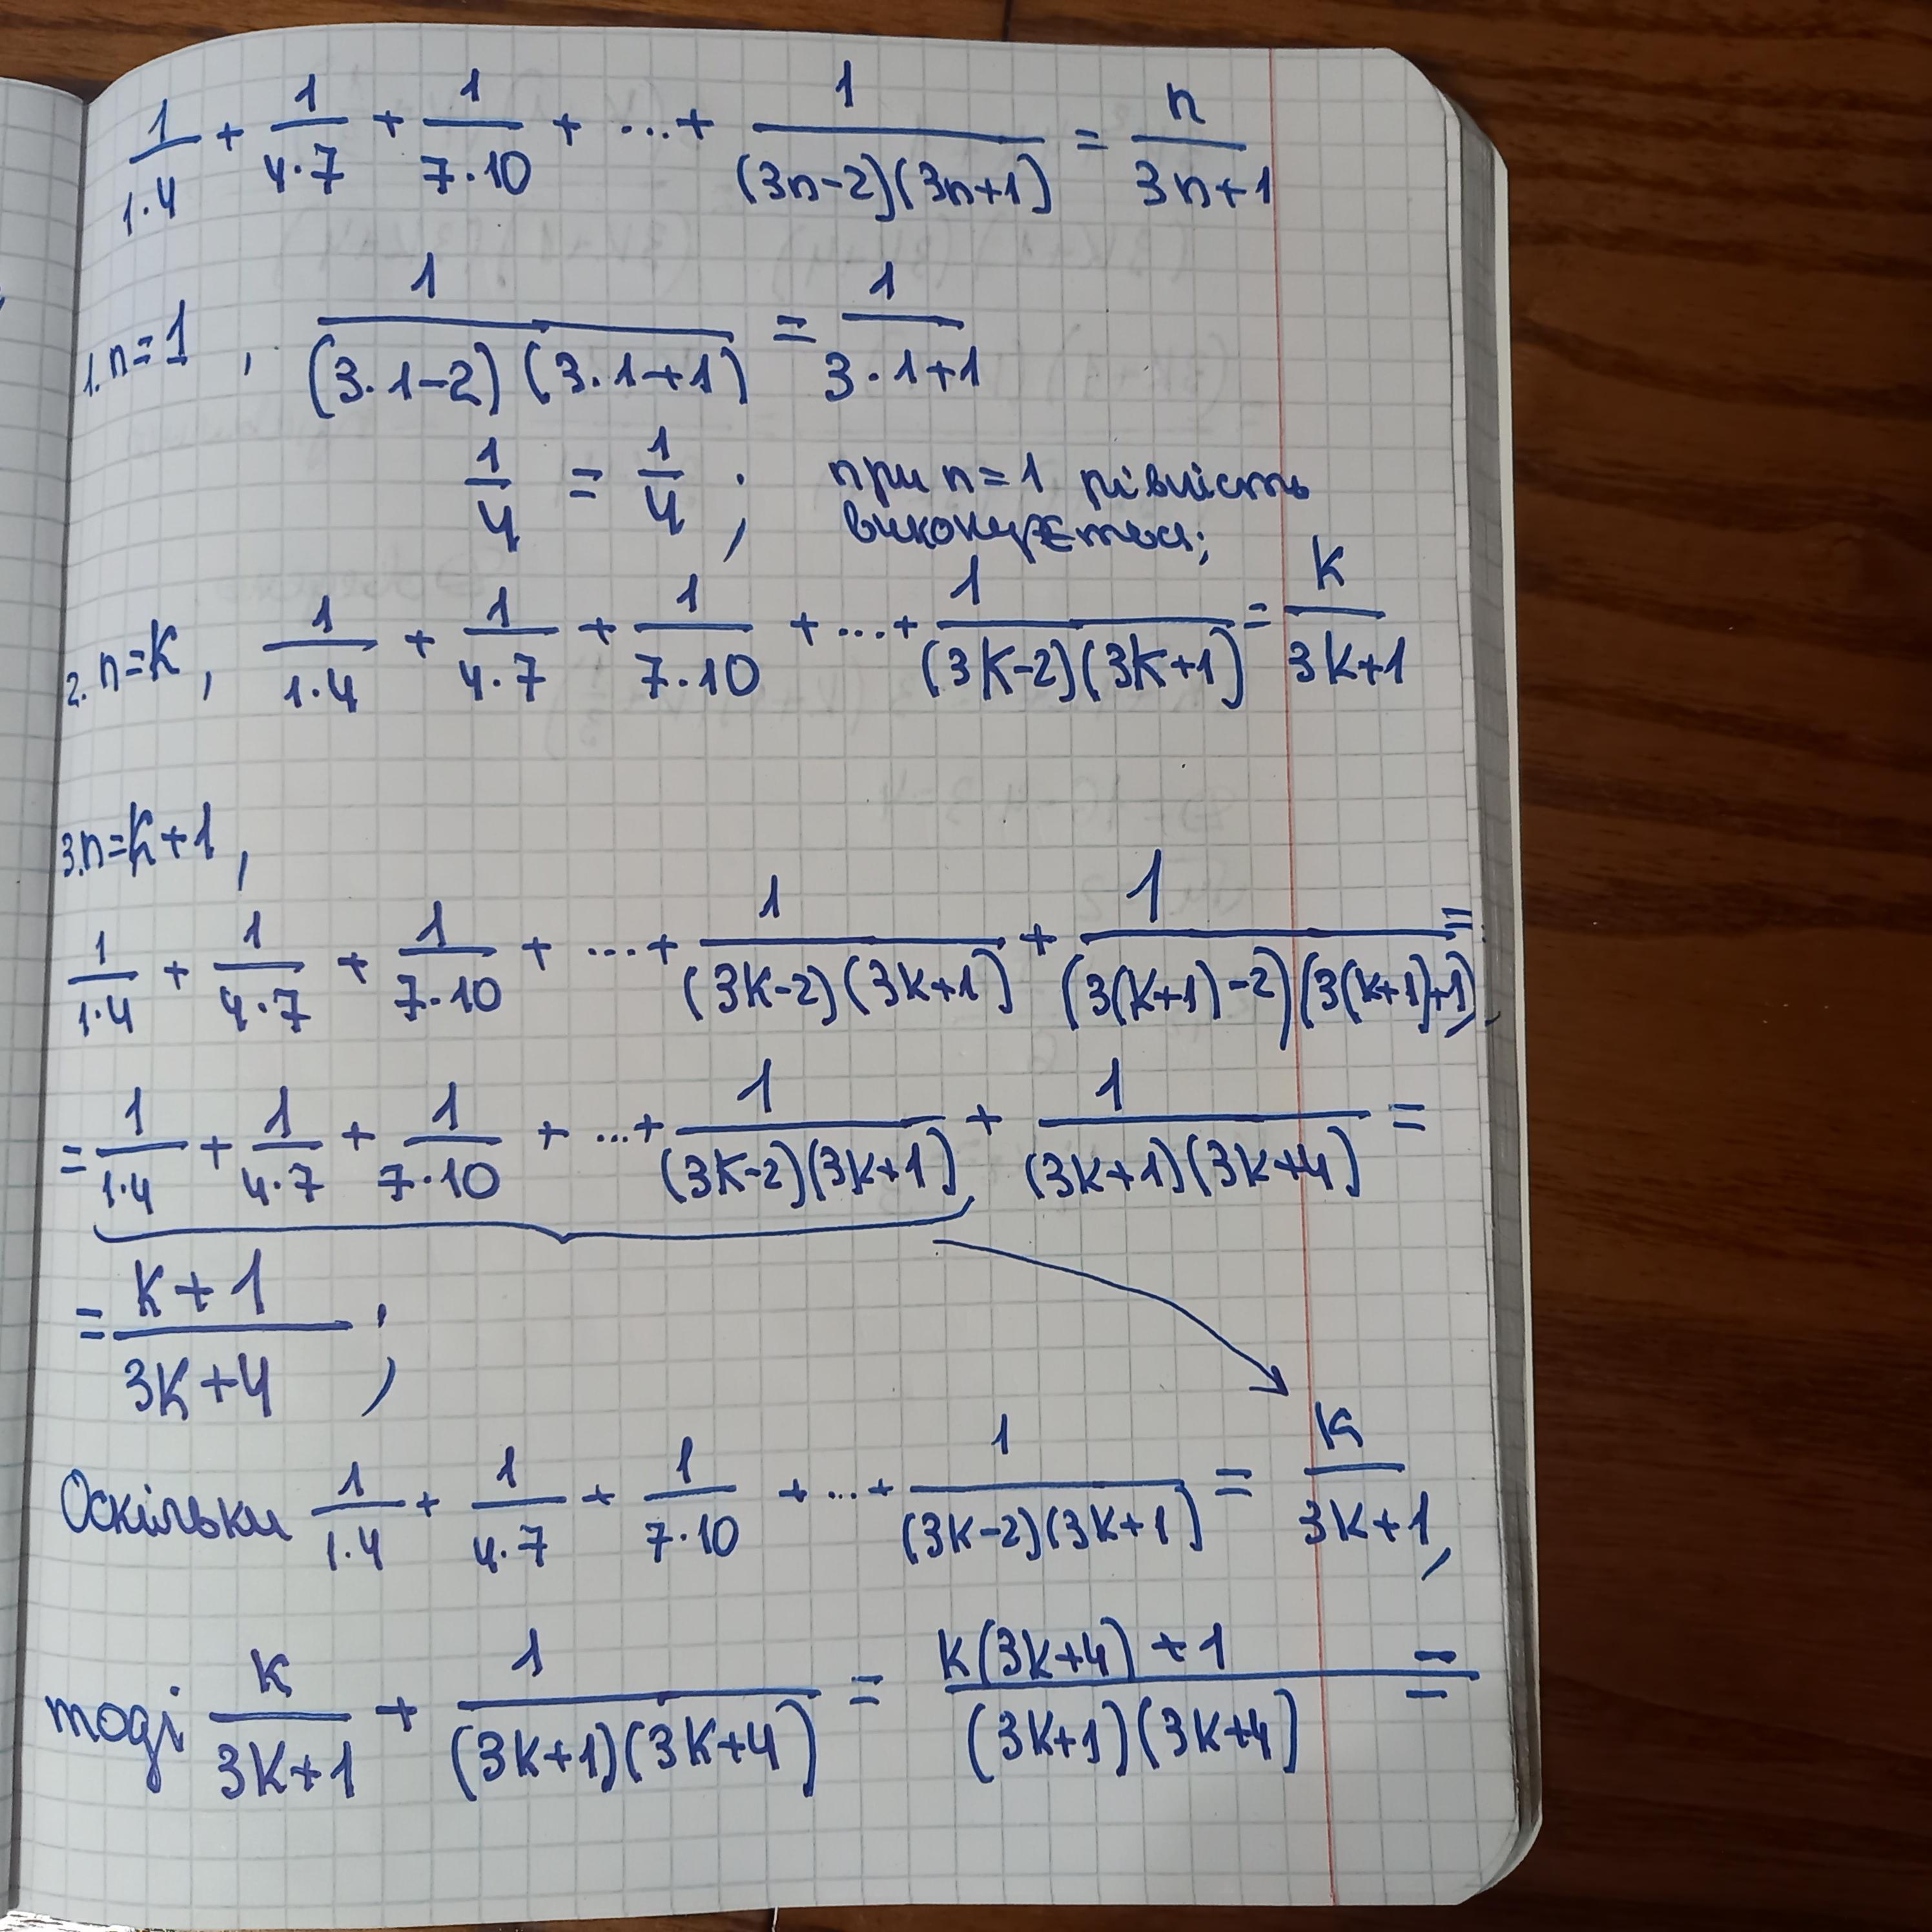 1/(1·4) + 1/(4·7) + 1/(7·10) + ...+ 1/((3n-2)(3n+1)) = n/(3n+1)
1. n=1, 1/((3·1-2)(3·1+1)) = 1/(3·1+1)
1/4 = 1/4; при n=1 рівність
виконується;
2. n=k, 1/(1·4) + 1/(4·7) + 1/(7·10) + ...+ 1/((3k-2)(3k+1)) = k/(3k+1)
3. n=k+1,
1/(1·4) + 1/(4·7) + 1/(7·10) + ...+ 1/((3k-2)(3k+1)) + 1/((3(k+1)-2)(3(k+1)+1)) =
= 1/(1·4) + 1/(4·7) + 1/(7·10) + ...+ 1/((3k-2)(3k+1)) + 1/((3k+1)(3k+4)) =
= (k+1)/(3k+4);
Оскільки 1/(1·4) + 1/(4·7) + 1/(7·10) + ...+ 1/((3k-2)(3k+1)) = k/(3k+1),
тоді k/(3k+1) + 1/((3k+1)(3k+4)) = (k(3k+4)+1)/((3k+1)(3k+4)) =